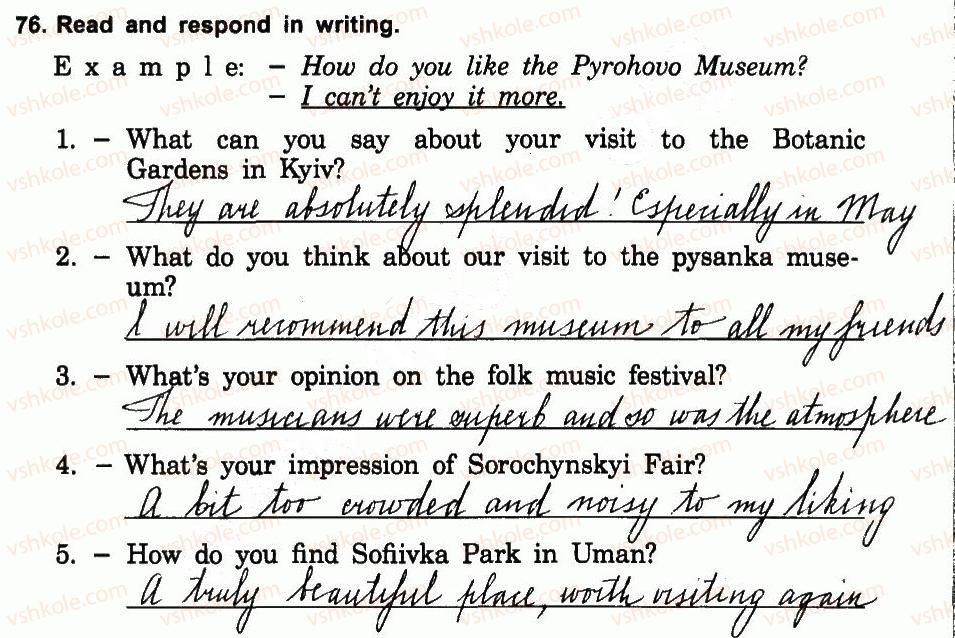 76. Read and respond in writing.
Example: – How do you like the Pyrohovo Museum?
– I can't enjoy it more.
1. – What can you say about your visit to the Botanic
Gardens in Kyiv?
They are absolutely splended! Especially in May
2. – What do you think about our visit to the pysanka muse-
um?
I will recommend this museum to all my friends
3. – What's your opinion on the folk music festival?
The musicians were superb and so was the atmosphere
4. – What's your impression of Sorochynskyi Fair?
A bit too crowded and noisy to my liking
5. – How do you find Sofiivka Park in Uman?
A truly beautiful place, worth visiting again
vshkole.com